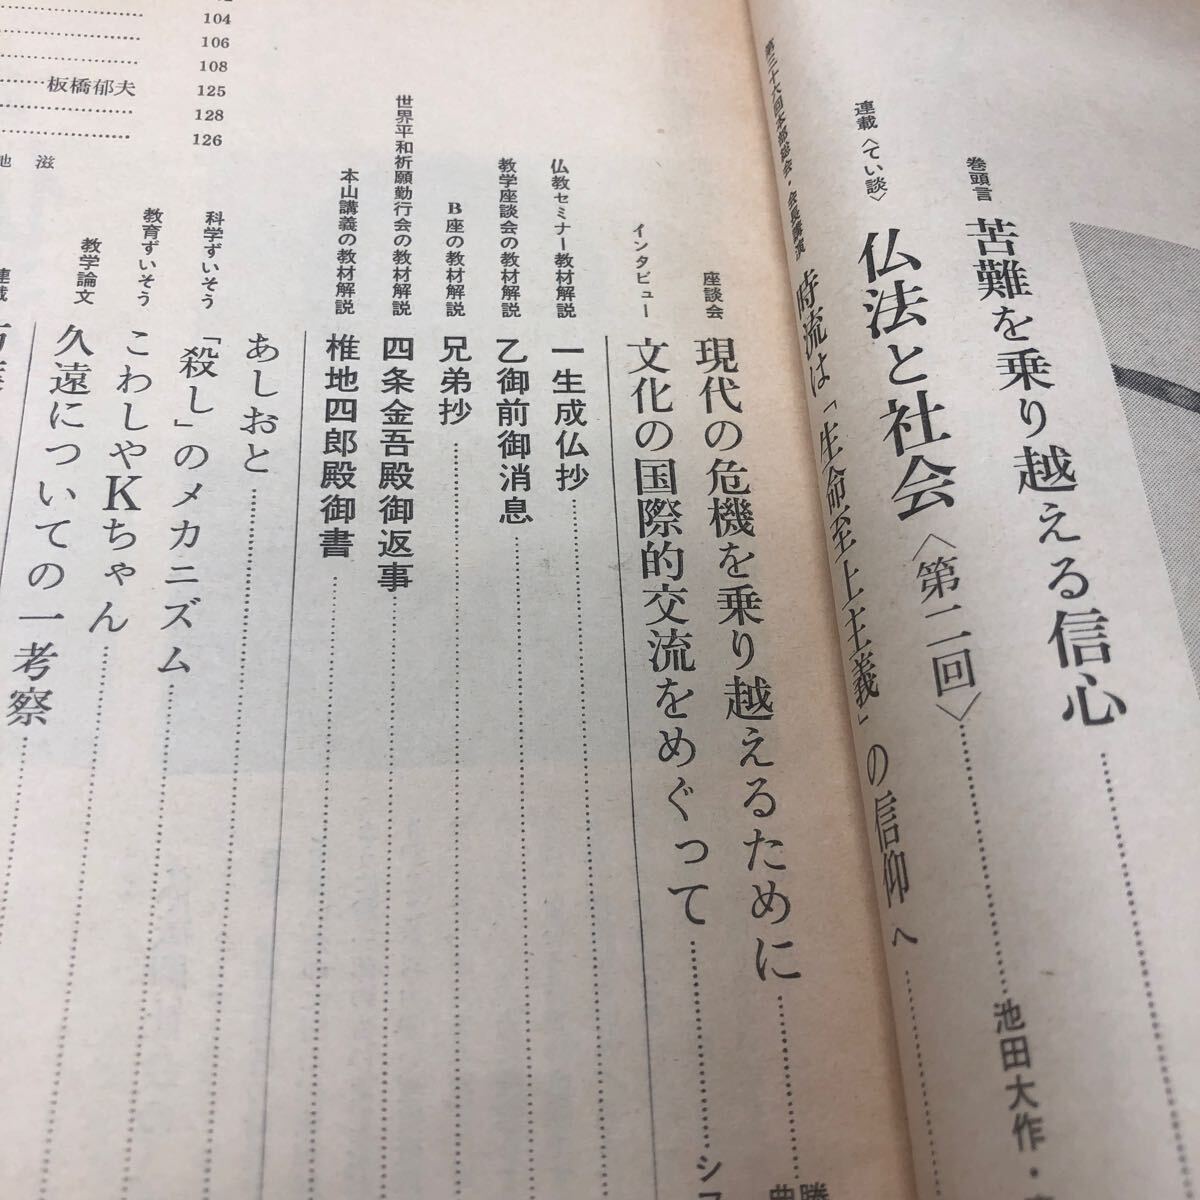 巻頭言 苦難を乗り越える信心
連載〈てい談〉 仏法と社会〈第二回〉 池田大作・
第三十六回本部総会・会長講演 時流は「生命至上主義」の信仰へ
座談会 現代の危機を乗り越えるために
インタビュー 文化の国際的交流をめぐって
仏教セミナー教材解説 一生成仏抄
教学座談会の教材解説 乙御前御消息
B座の教材解説 兄弟抄
世界平和祈願勤行会の教材解説 四条金吾殿御返事
本山講義の教材解説 椎地四郎殿御書
あしおと
科学ずいそう 「殺し」のメカニズム
教育ずいそう こわしやKちゃん
教学論文 久遠についての一考察
連載
104
106
108
板橋郁夫 125
128
126
滋